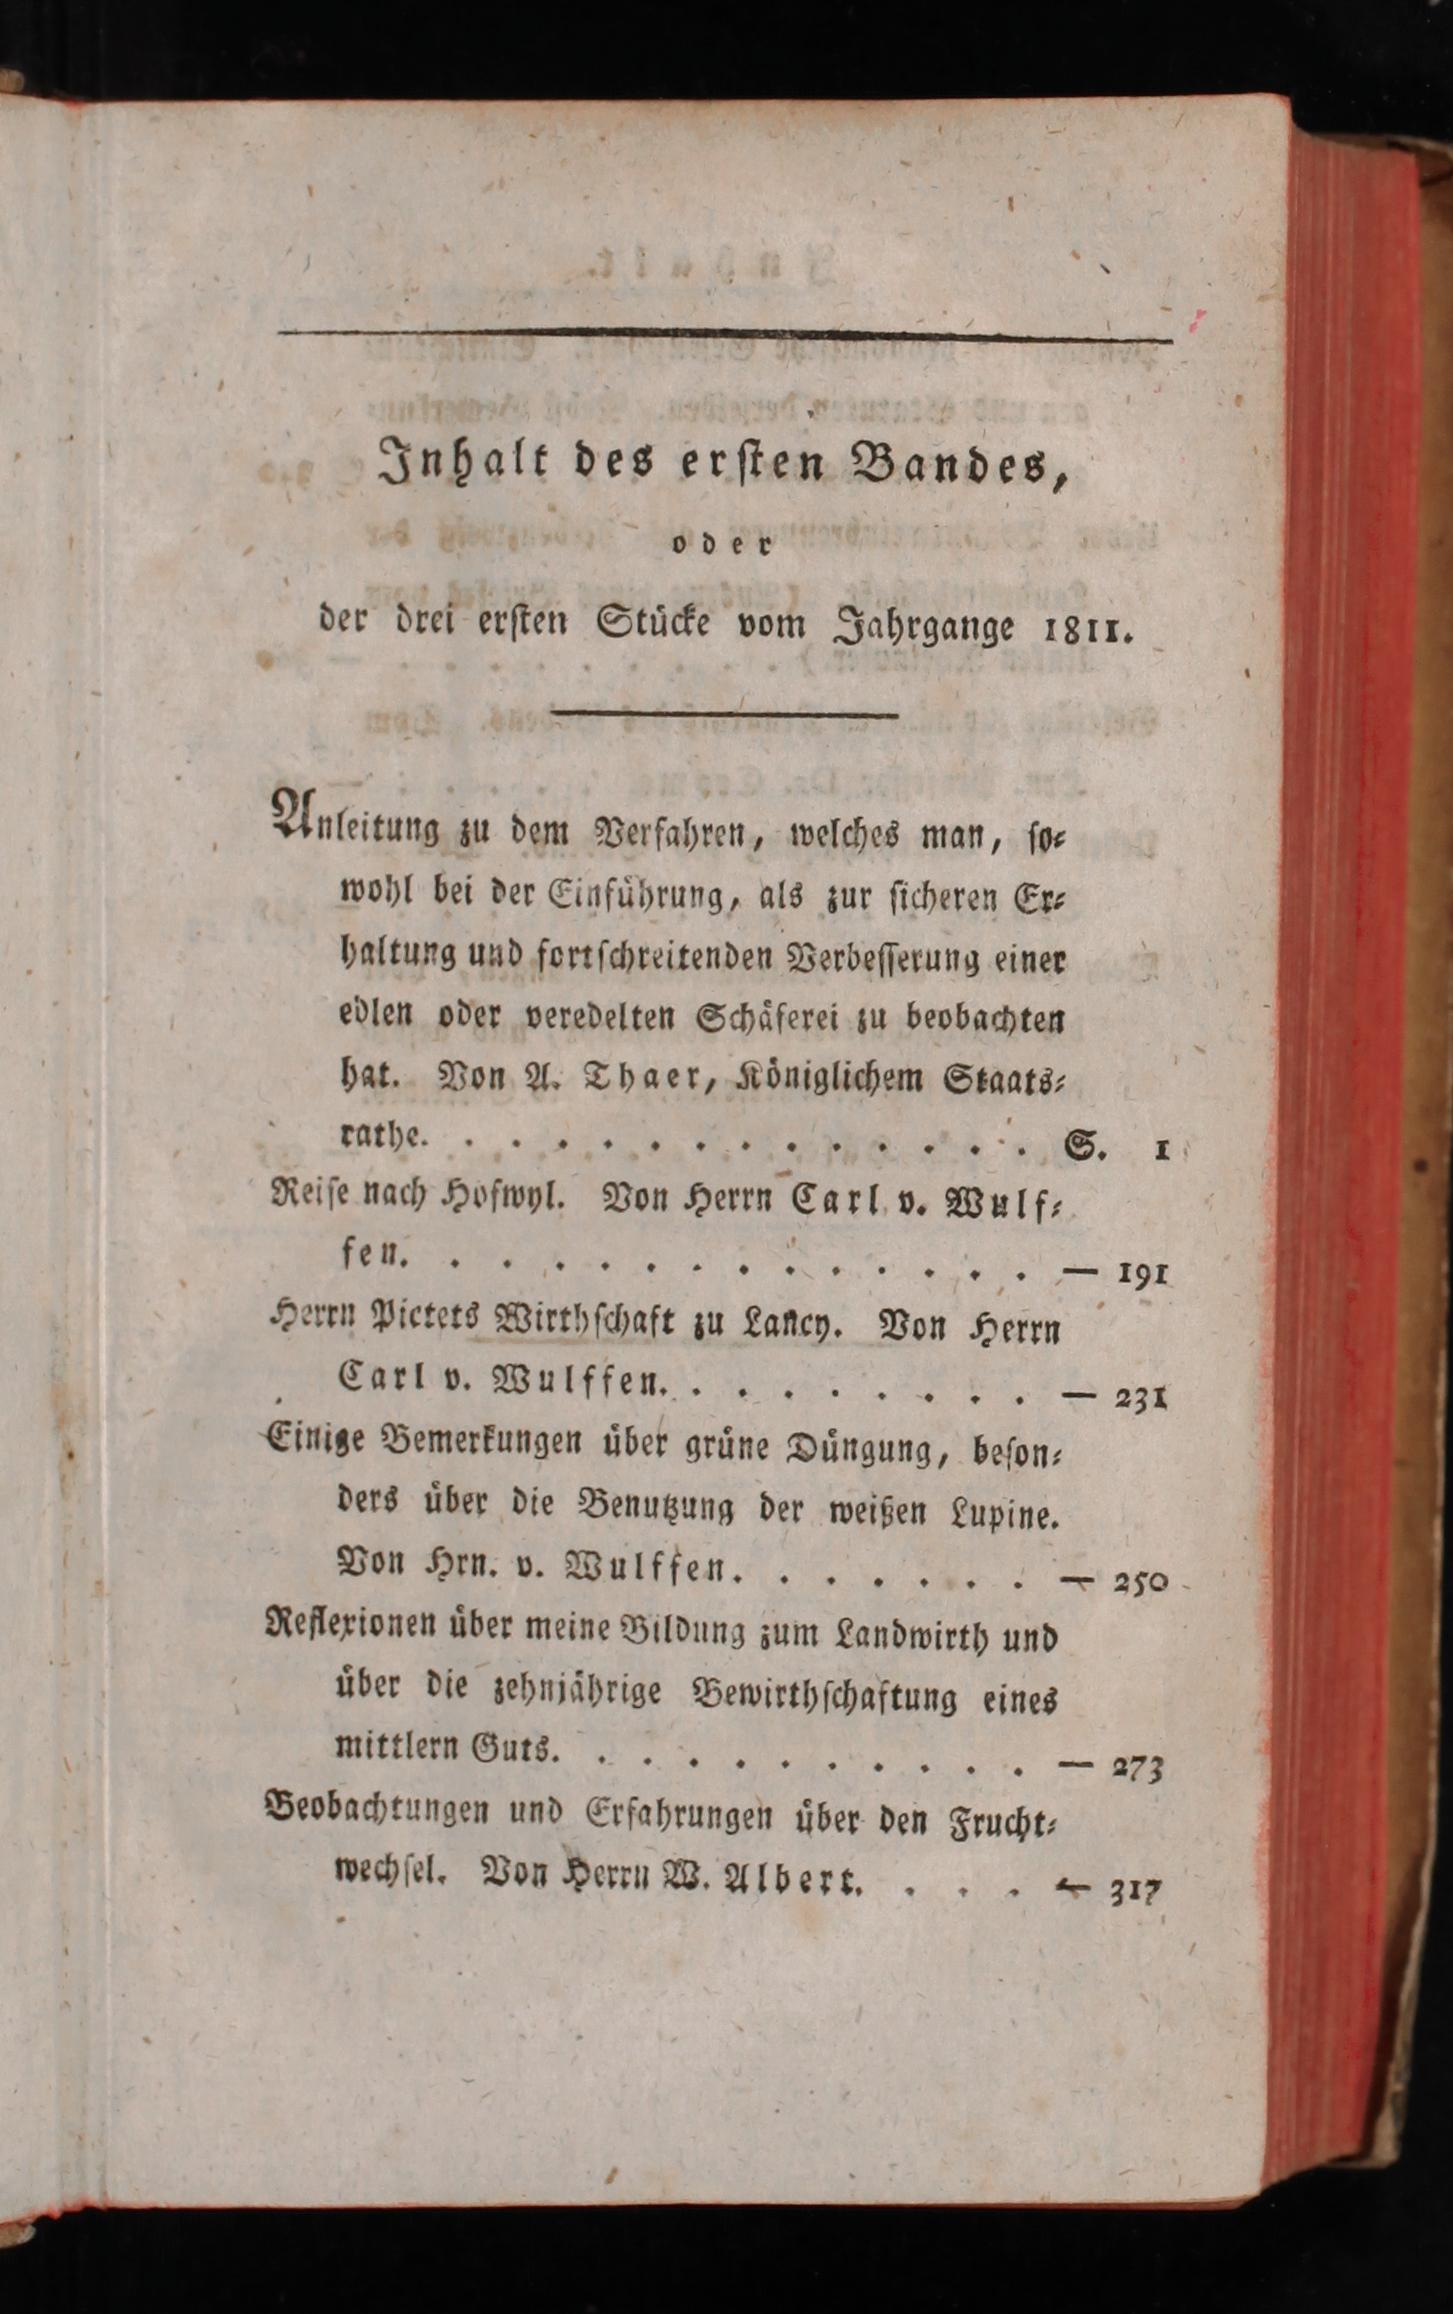 Inhalt des ersten Bandes,
oder
der drei ersten Stücke vom Jahrgange 1811.
Anleitung zu dem Verfahren, welches man, so-
wohl bei der Einführung, als zur sicheren Er-
haltung und fortschreitenden Verbesserung einer
edlen oder veredelten Schäferei zu beobachten
hat. Von A. Thaer, Königlichem Staats-
rathe. . . . . . . . . . . . . . S. 1
Reise nach Hofwyl. Von Herrn Carl v. Wulf-
fen. . . . . . . . . . . . . . — 191
Herrn Pictets Wirthschaft zu Lancy. Von Herrn
Carl v. Wulffen. . . . . . . . . — 231
Einige Bemerkungen über grüne Düngung, beson-
ders über die Benutzung der weißen Lupine.
Von Hrn. v. Wulffen. . . . . . . — 250
Reflexionen über meine Bildung zum Landwirth und
über die zehnjährige Bewirthschaftung eines
mittlern Guts. . . . . . . . . . . — 273
Beobachtungen und Erfahrungen über den Frucht-
wechsel. Von Herrn W. Albert. . . . — 317